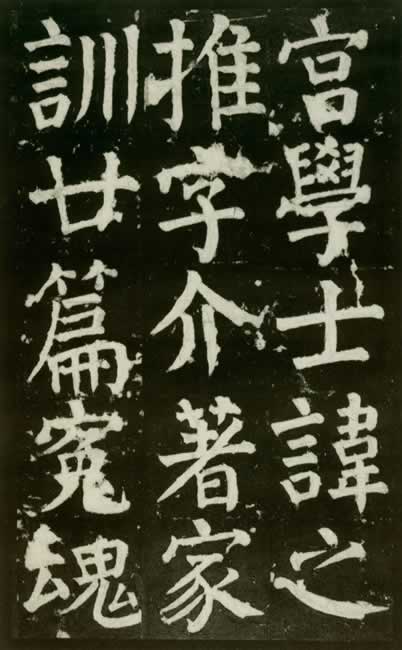 宮學士諱之
推字介著家
訓廿篇寃魂